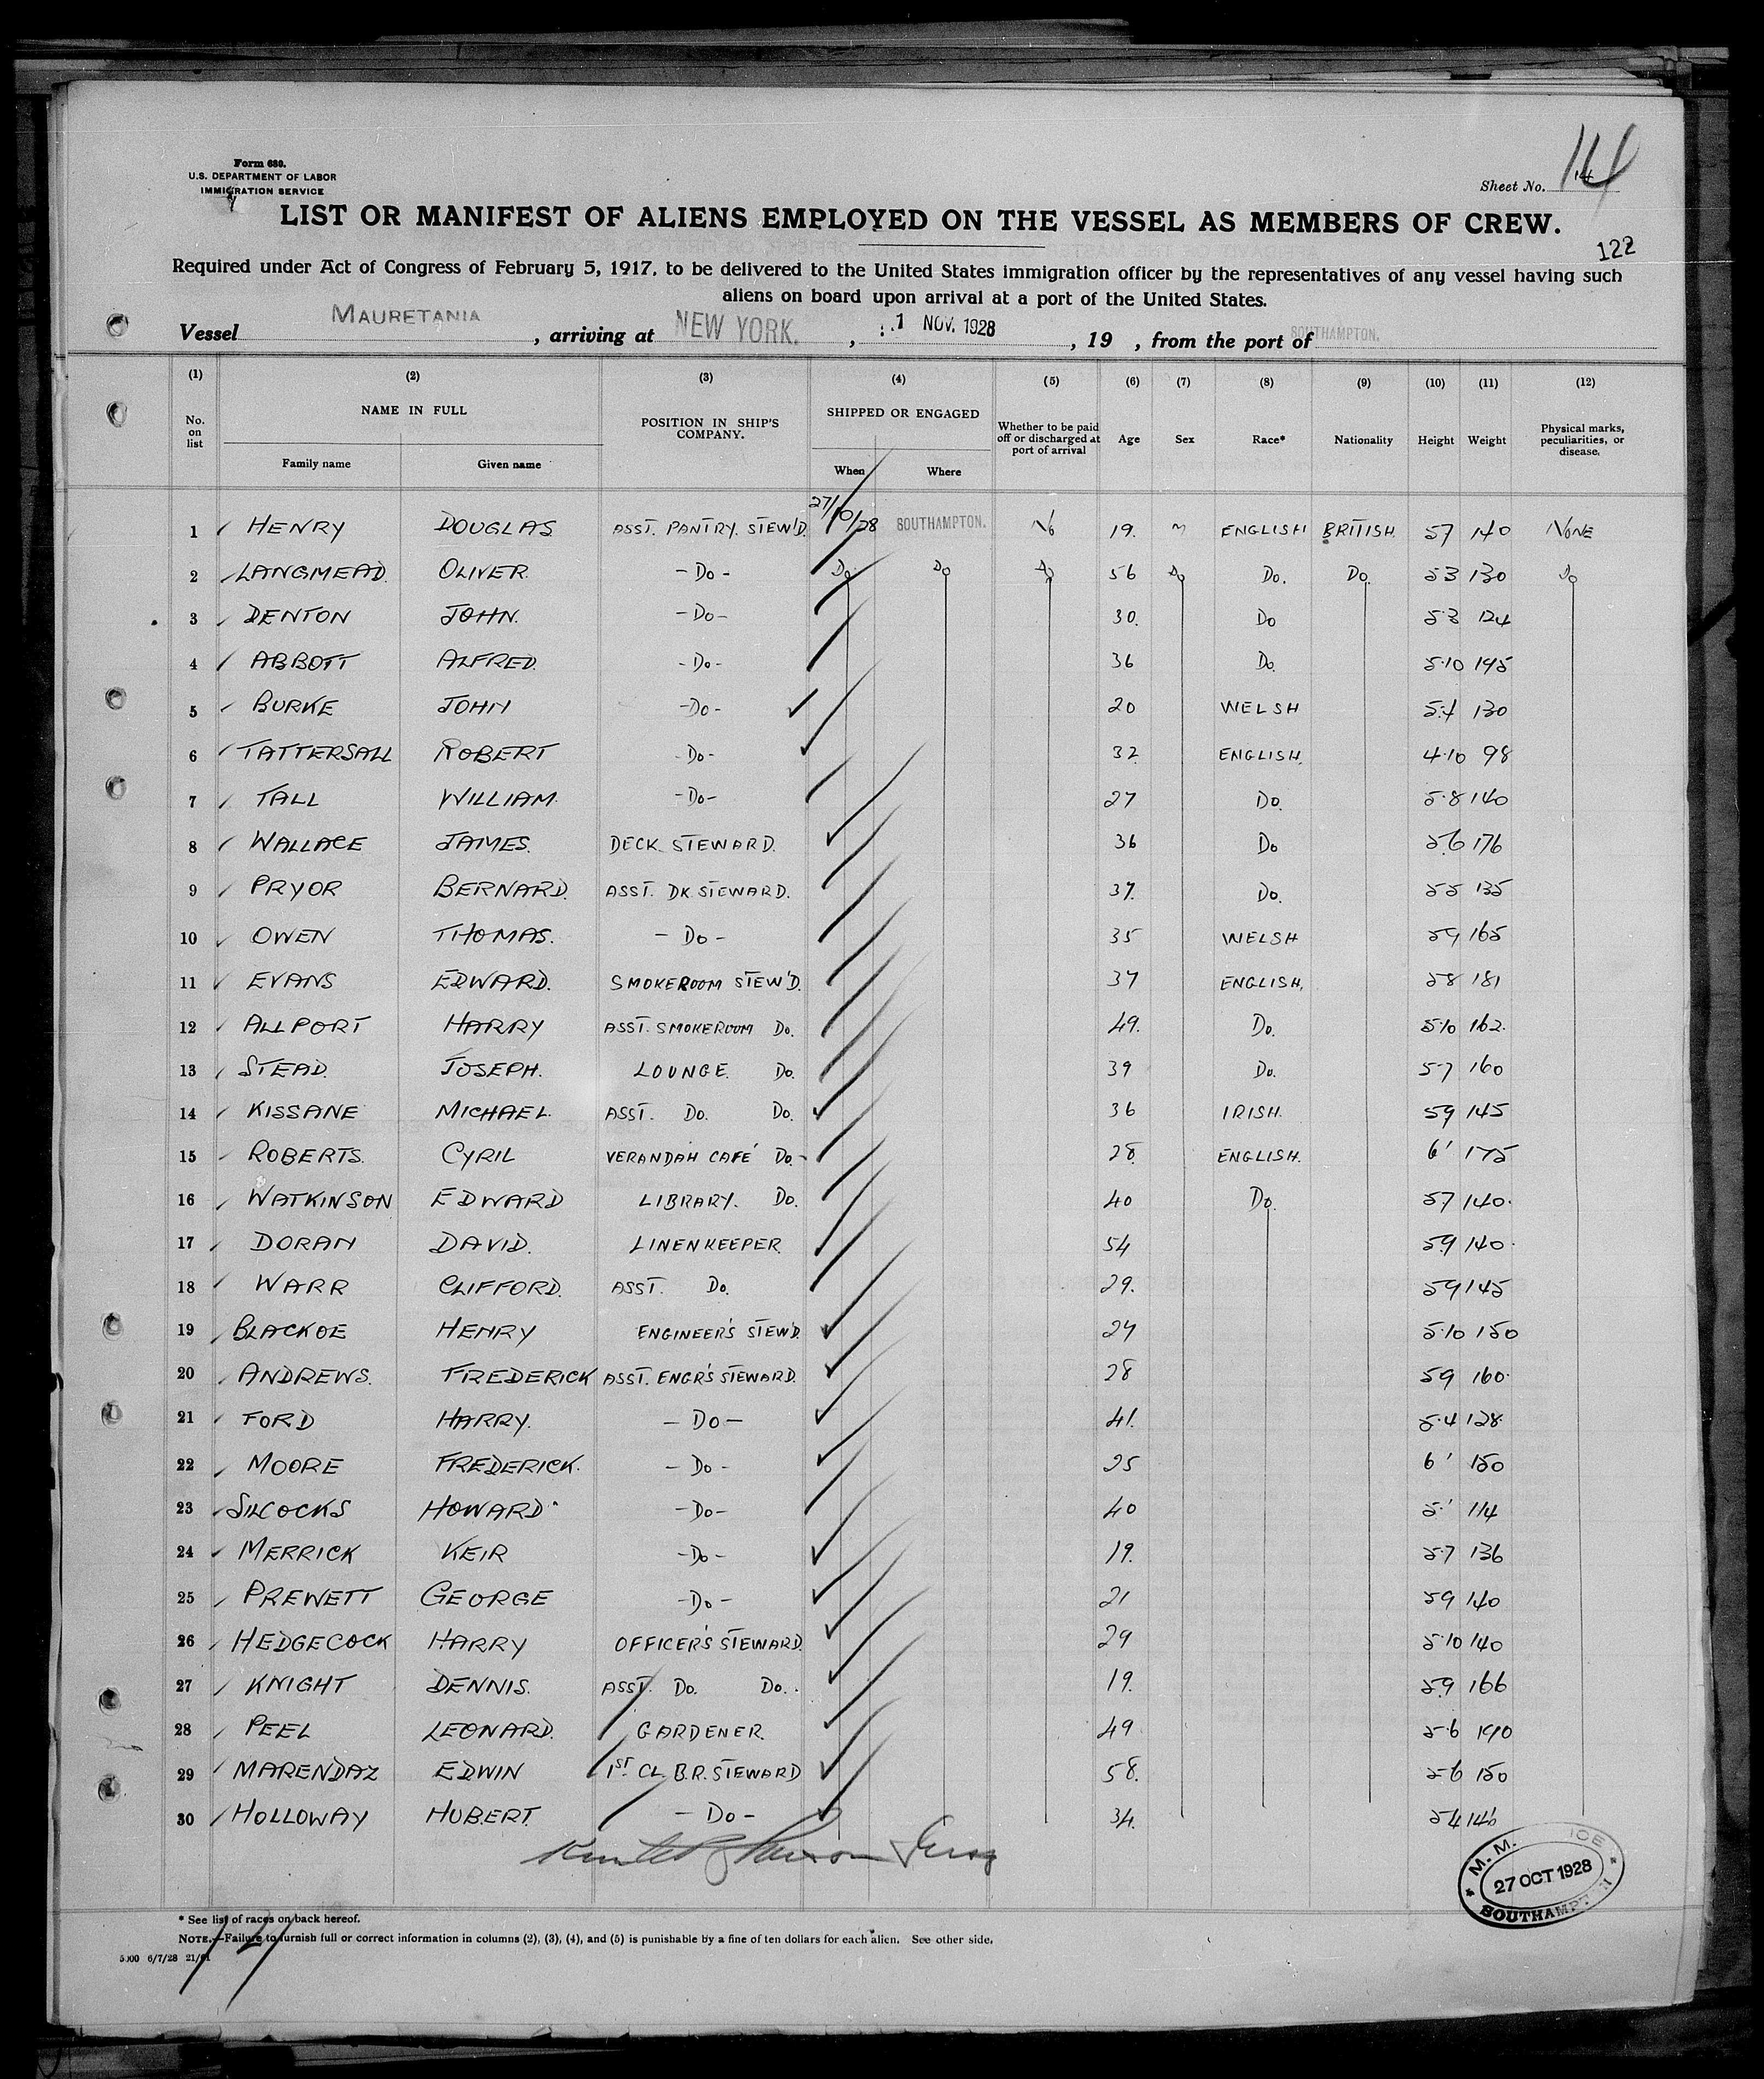 Form 680.
U.S. DEPARTMENT OF LABOR
IMMIGRATION SERVICE
Sheet No. 14
LIST OR MANIFEST OF ALIENS EMPLOYED ON THE VESSEL AS MEMBERS OF CREW.
122
Required under Act of Congress of February 5, 1917, to be delivered to the United States immigration officer by the representatives of any vessel having such
aliens on board upon arrival at a port of the United States.
Vessel MAURETANIA, arriving at NEW YORK., 1 NOV. 1928, 19 , from the port of SOUTHAMPTON.
(1) (2) (3) (4) (5) (6) (7) (8) (9) (10) (11) (12)
No. on list NAME IN FULL Family name Given name POSITION IN SHIP'S COMPANY. SHIPPED OR ENGAGED When Where Whether to be paid off or discharged at port of arrival Age Sex Race* Nationality Height Weight Physical marks, peculiarities, or disease.
1 HENRY DOUGLAS ASST. PANTRY. STEW'D. 27/10/28 SOUTHAMPTON. No 19. M ENGLISH BRITISH. 57 140 NONE
2 LANGMEAD. OLIVER. -Do- Do Do Do 56 Do Do. Do. 53 130 Do
3 DENTON JOHN. -Do- 30. Do 5·3 124
4 ABBOTT ALFRED. -Do- 36 Do. 5·10 195
5 BURKE JOHN -Do- 20 WELSH 5·4 130
6 TATTERSALL ROBERT -Do- 32 ENGLISH. 4·10 98
7 TALL WILLIAM. -Do- 27 Do. 5·8 140
8 WALLACE JAMES. DECK STEWARD. 36 Do 5.6 176
9 PRYOR BERNARD. ASST. DK STEWARD. 37. Do. 55 135
10 OWEN THOMAS. -Do- 35 WELSH 59 165
11 EVANS EDWARD. SMOKEROOM STEW'D. 37 ENGLISH. 58 181
12 ALLPORT HARRY ASST. SMOKEROOM Do. 49. Do. 5·10 162.
13 STEAD. JOSEPH. LOUNGE. Do. 39 Do. 57 160
14 KISSANE MICHAEL. ASST. Do. Do. 36 IRISH. 59 145
15 ROBERTS. CYRIL VERANDAH CAFÉ Do. 28. ENGLISH. 6' 175
16 WATKINSON EDWARD LIBRARY. Do. 40 Do. 57 140.
17 DORAN DAVID. LINENKEEPER 54 5.9 140.
18 WARR CLIFFORD. ASST. Do. 29. 59 145
19 BLACKOE HENRY ENGINEER'S STEW'D 5·10 150
20 ANDREWS. FREDERICK ASST. ENGR'S STEWARD. 28 59 160.
21 FORD HARRY. -Do- 41. 5·4 128.
22 MOORE FREDERICK. -Do- 25 6' 150
23 SILCOCKS HOWARD -Do- 40 5' 114
24 MERRICK KEIR -Do- 19. 5·7 136
25 PREWETT GEORGE -Do- 21 59 140
26 HEDGECOCK HARRY OFFICER'S STEWARD. 29 5·10 140
27 KNIGHT DENNIS. ASST. Do. Do. 19. 5.9 166
28 PEEL LEONARD. GARDENER. 49 5·6 190
29 MARENDAZ EDWIN 1ST. CL. B.R. STEWARD 58. 5·6 150
30 HOLLOWAY HUBERT. -Do- 34. 54
M. M. ICE
27 OCT 1928
SOUTHAMPTON
* See list of races on back hereof.
NOTE.—Failure to furnish full or correct information in columns (2), (3), (4), and (5) is punishable by a fine of ten dollars for each alien. See other side.
6/7/28